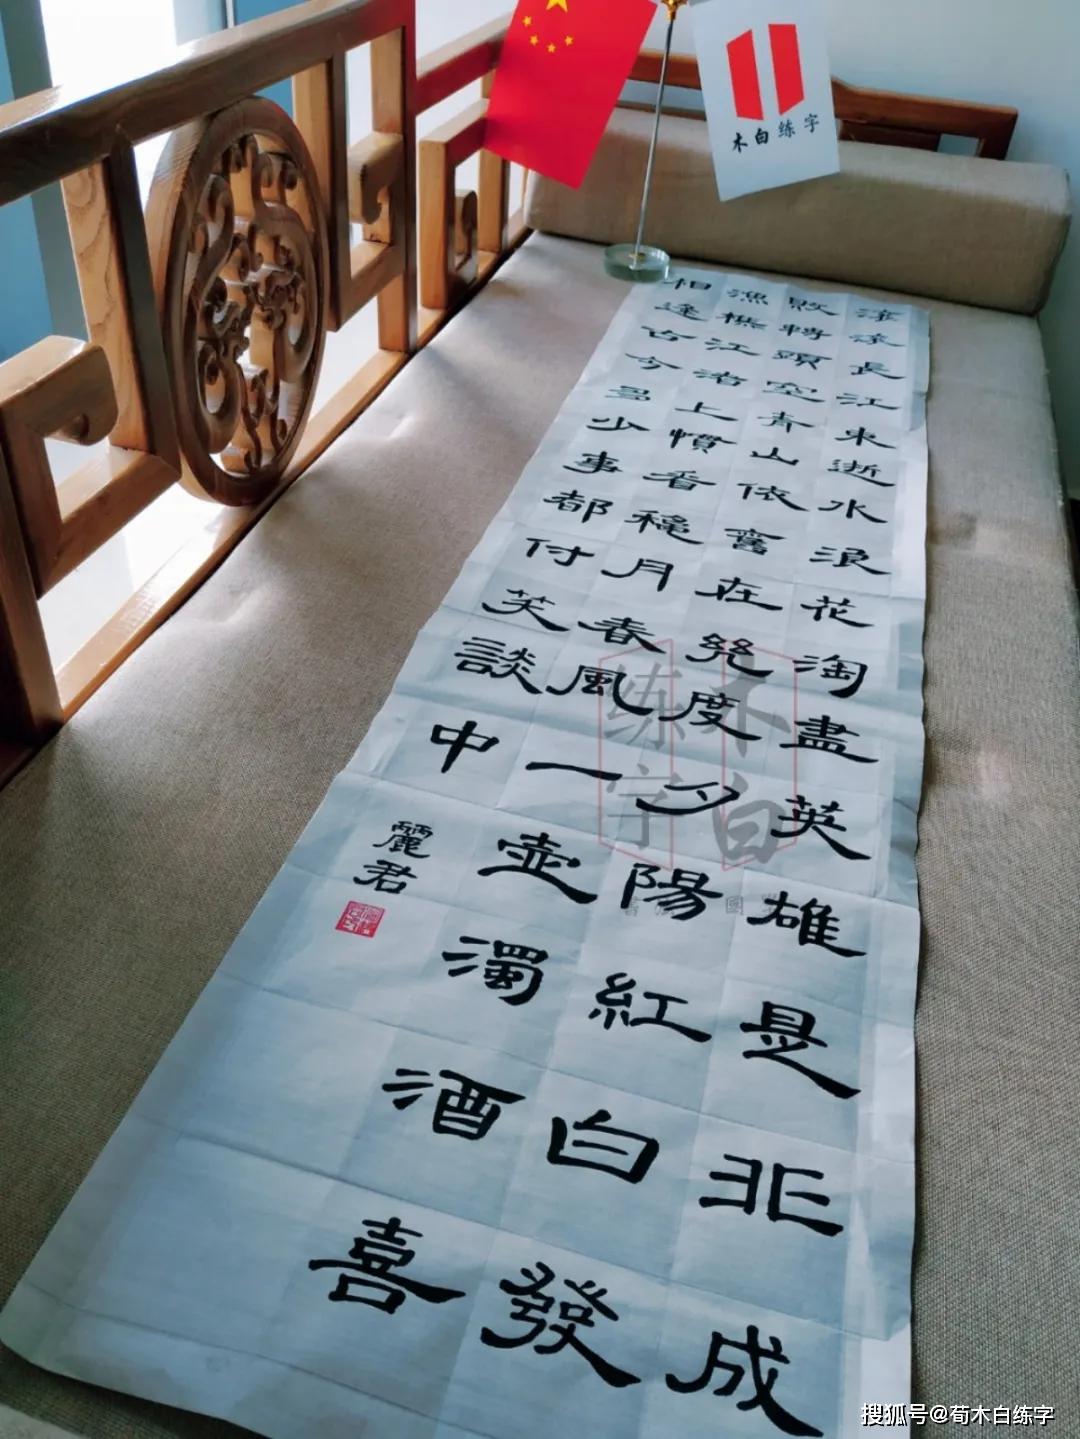 滚滚長江東逝水浪花淘盡英雄是非成
敗轉頭空青山依舊在幾度夕陽紅白發
漁樵江渚上慣看穐月春風一壺濁酒喜
相逢古今多少事都付笑談中
麗君
木白练字
木白
练字
搜狐号@荀木白练字